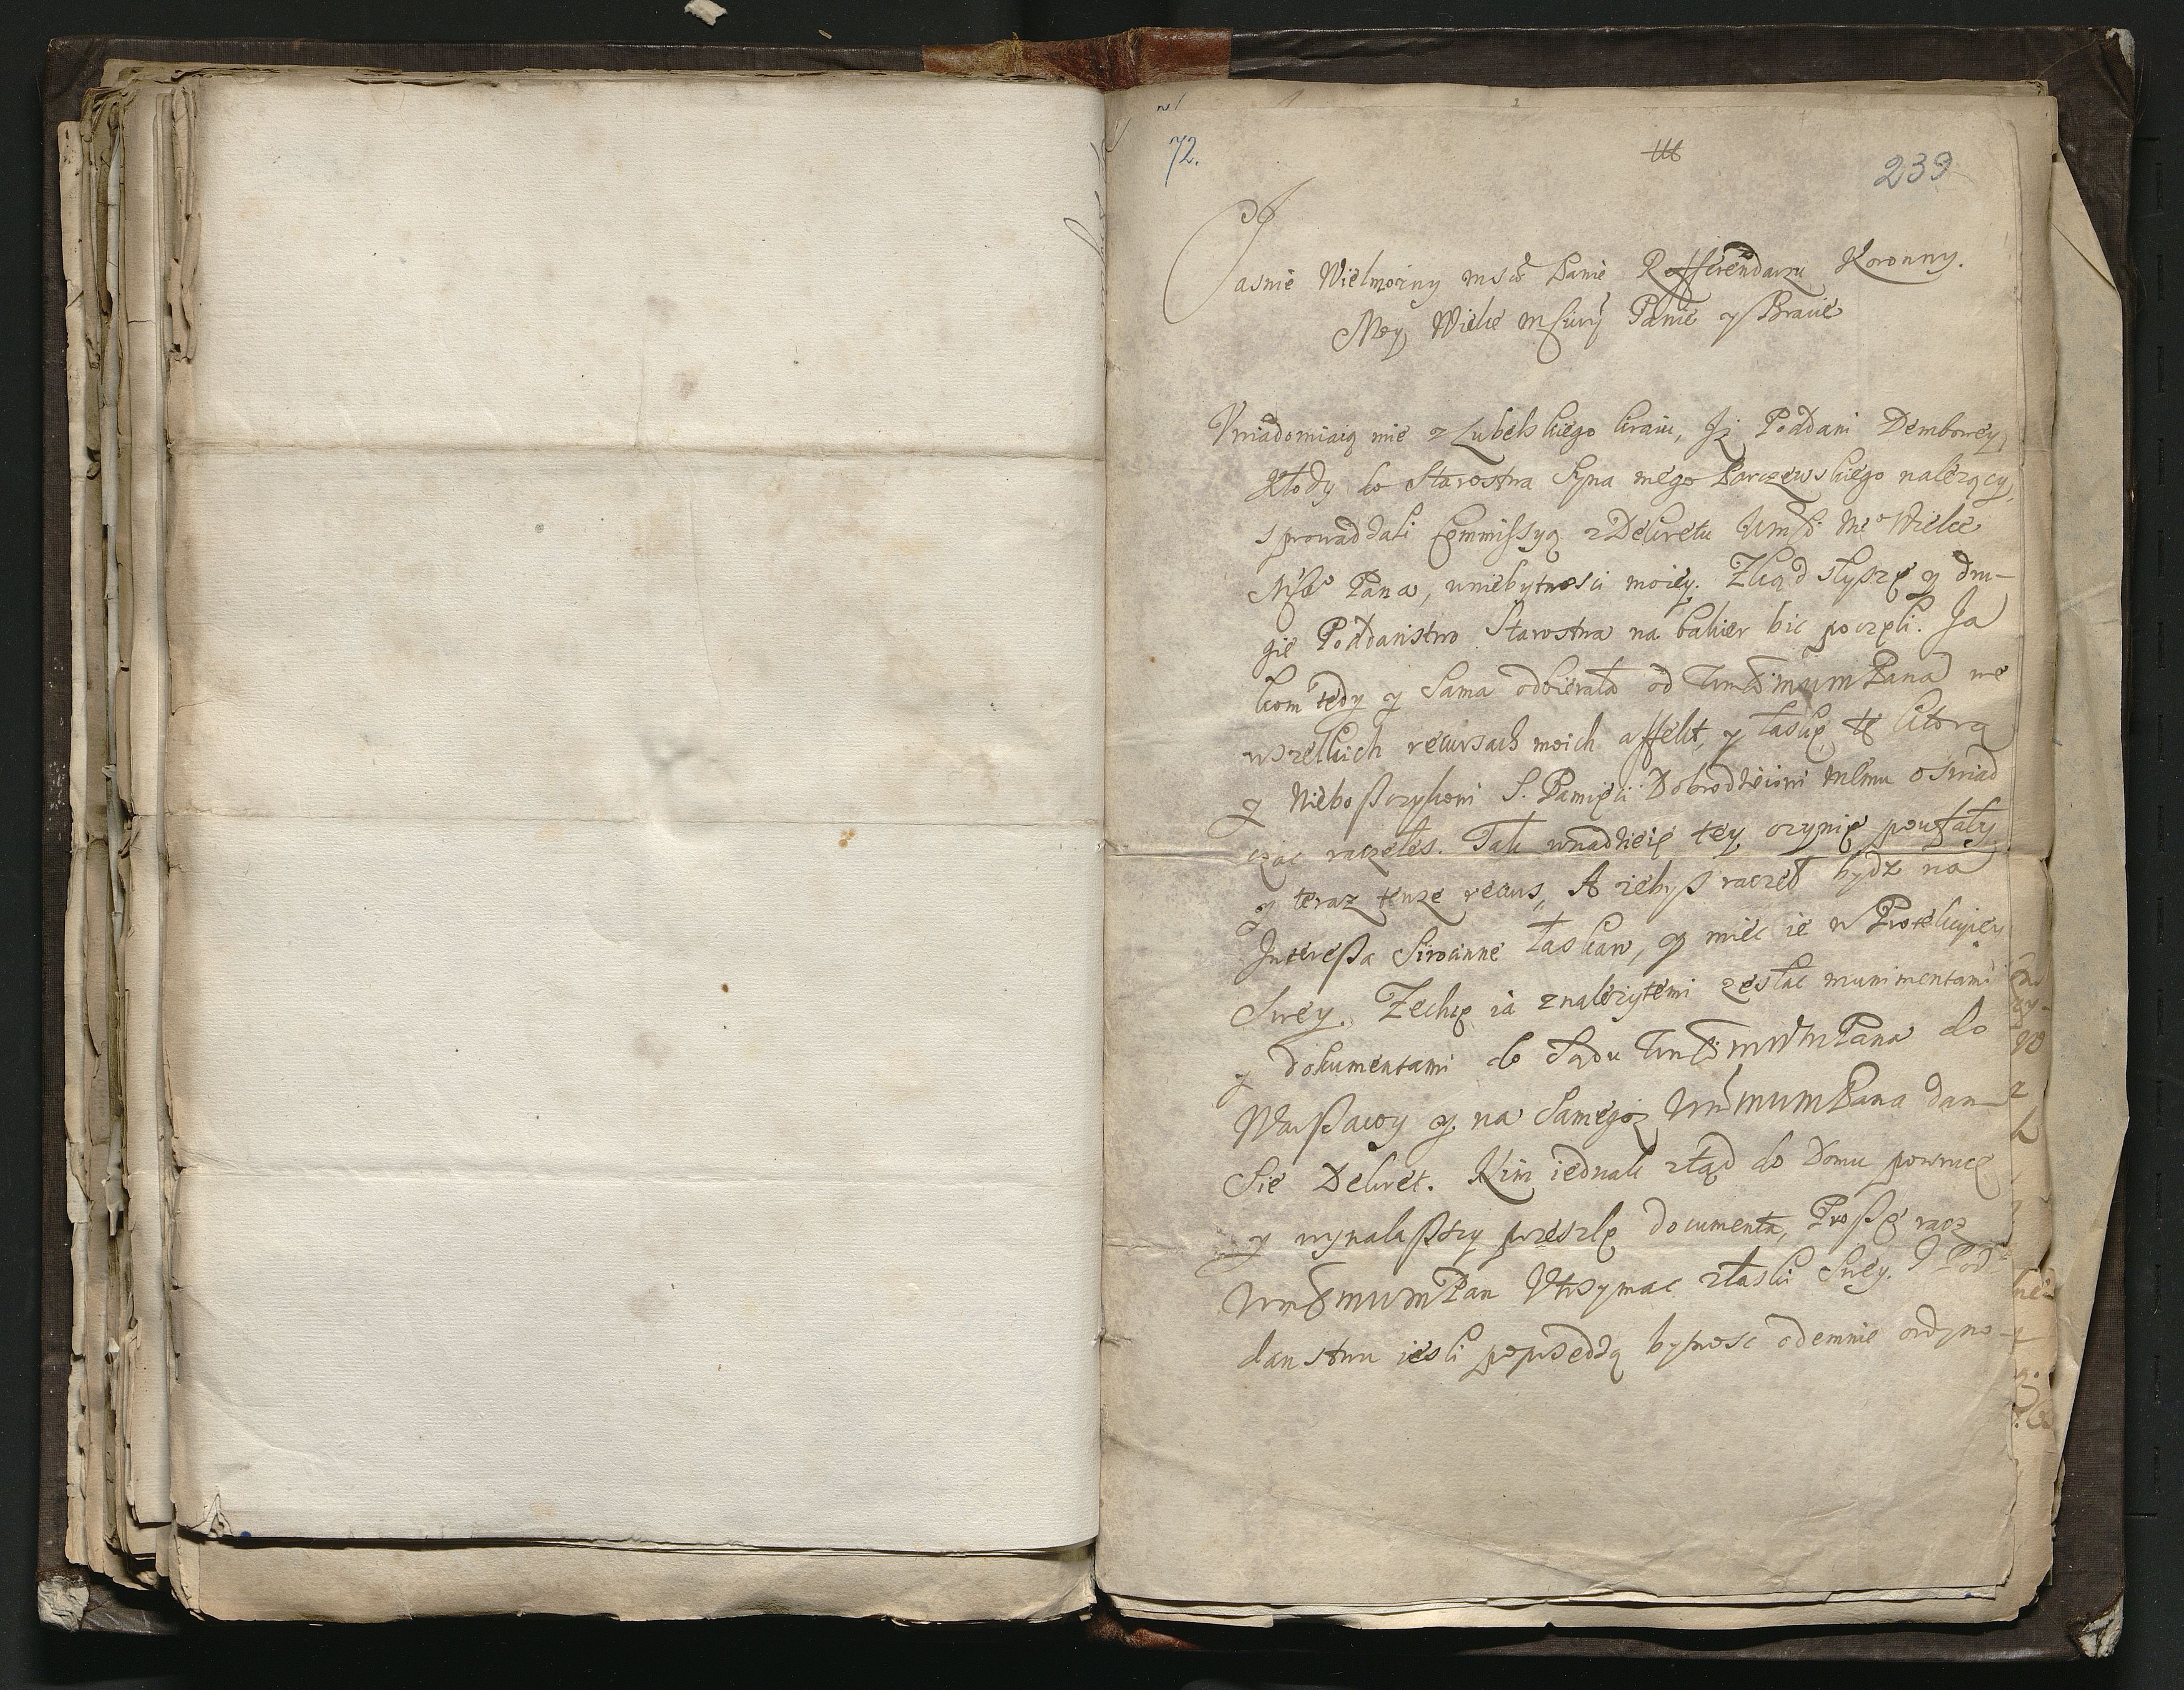 72.
239
Jasnie Wielmozny msćo Panie Refferendarzu Koronny.
Mey Wielce Panie y Bracie
Vwiadomiaią mie z Lubelskiego kraiu, Jż Poddani Dembowey
Kłody do Starostwa Syna mego Parczewskiego nalezący,
sprowadzali Commissyą z Dekretu Wielce
Pana, wniebytnosci moiey. Zkąd słyszę y dru-
gie Poddanistwo Starostwa na bakier bic poczęli. Ja
kom tedy y Sama odbierała od Pana we
wszelkich recursach moich affekt, y łaskę tę ktorą
y Nieboszczykowi S. Pamięci Dobrodzieiowi memu oswiad
czac raczełes. Tak wnadzieię tey czynię poufały
y teraz tenze recurs, A zebyß raczeł bydz na
Interessa Siroinne łaskaw, y miec ie w Protekcyiey
Swey. Zechcę ia znalezytemi zesłac munimentami
y dokumentami do Sądu Pana do
Warßawy y na Samegoz Pana dam
Sie Dekret. Nim iednak ztąd do Domu powrucę
y wynalaßszy przeszlę documenta, Proßę racz
Pan Vtrzymac złaski Swey. I Pod-
danstwu iesli poprzedzą bytnosc odemnie ordyno-